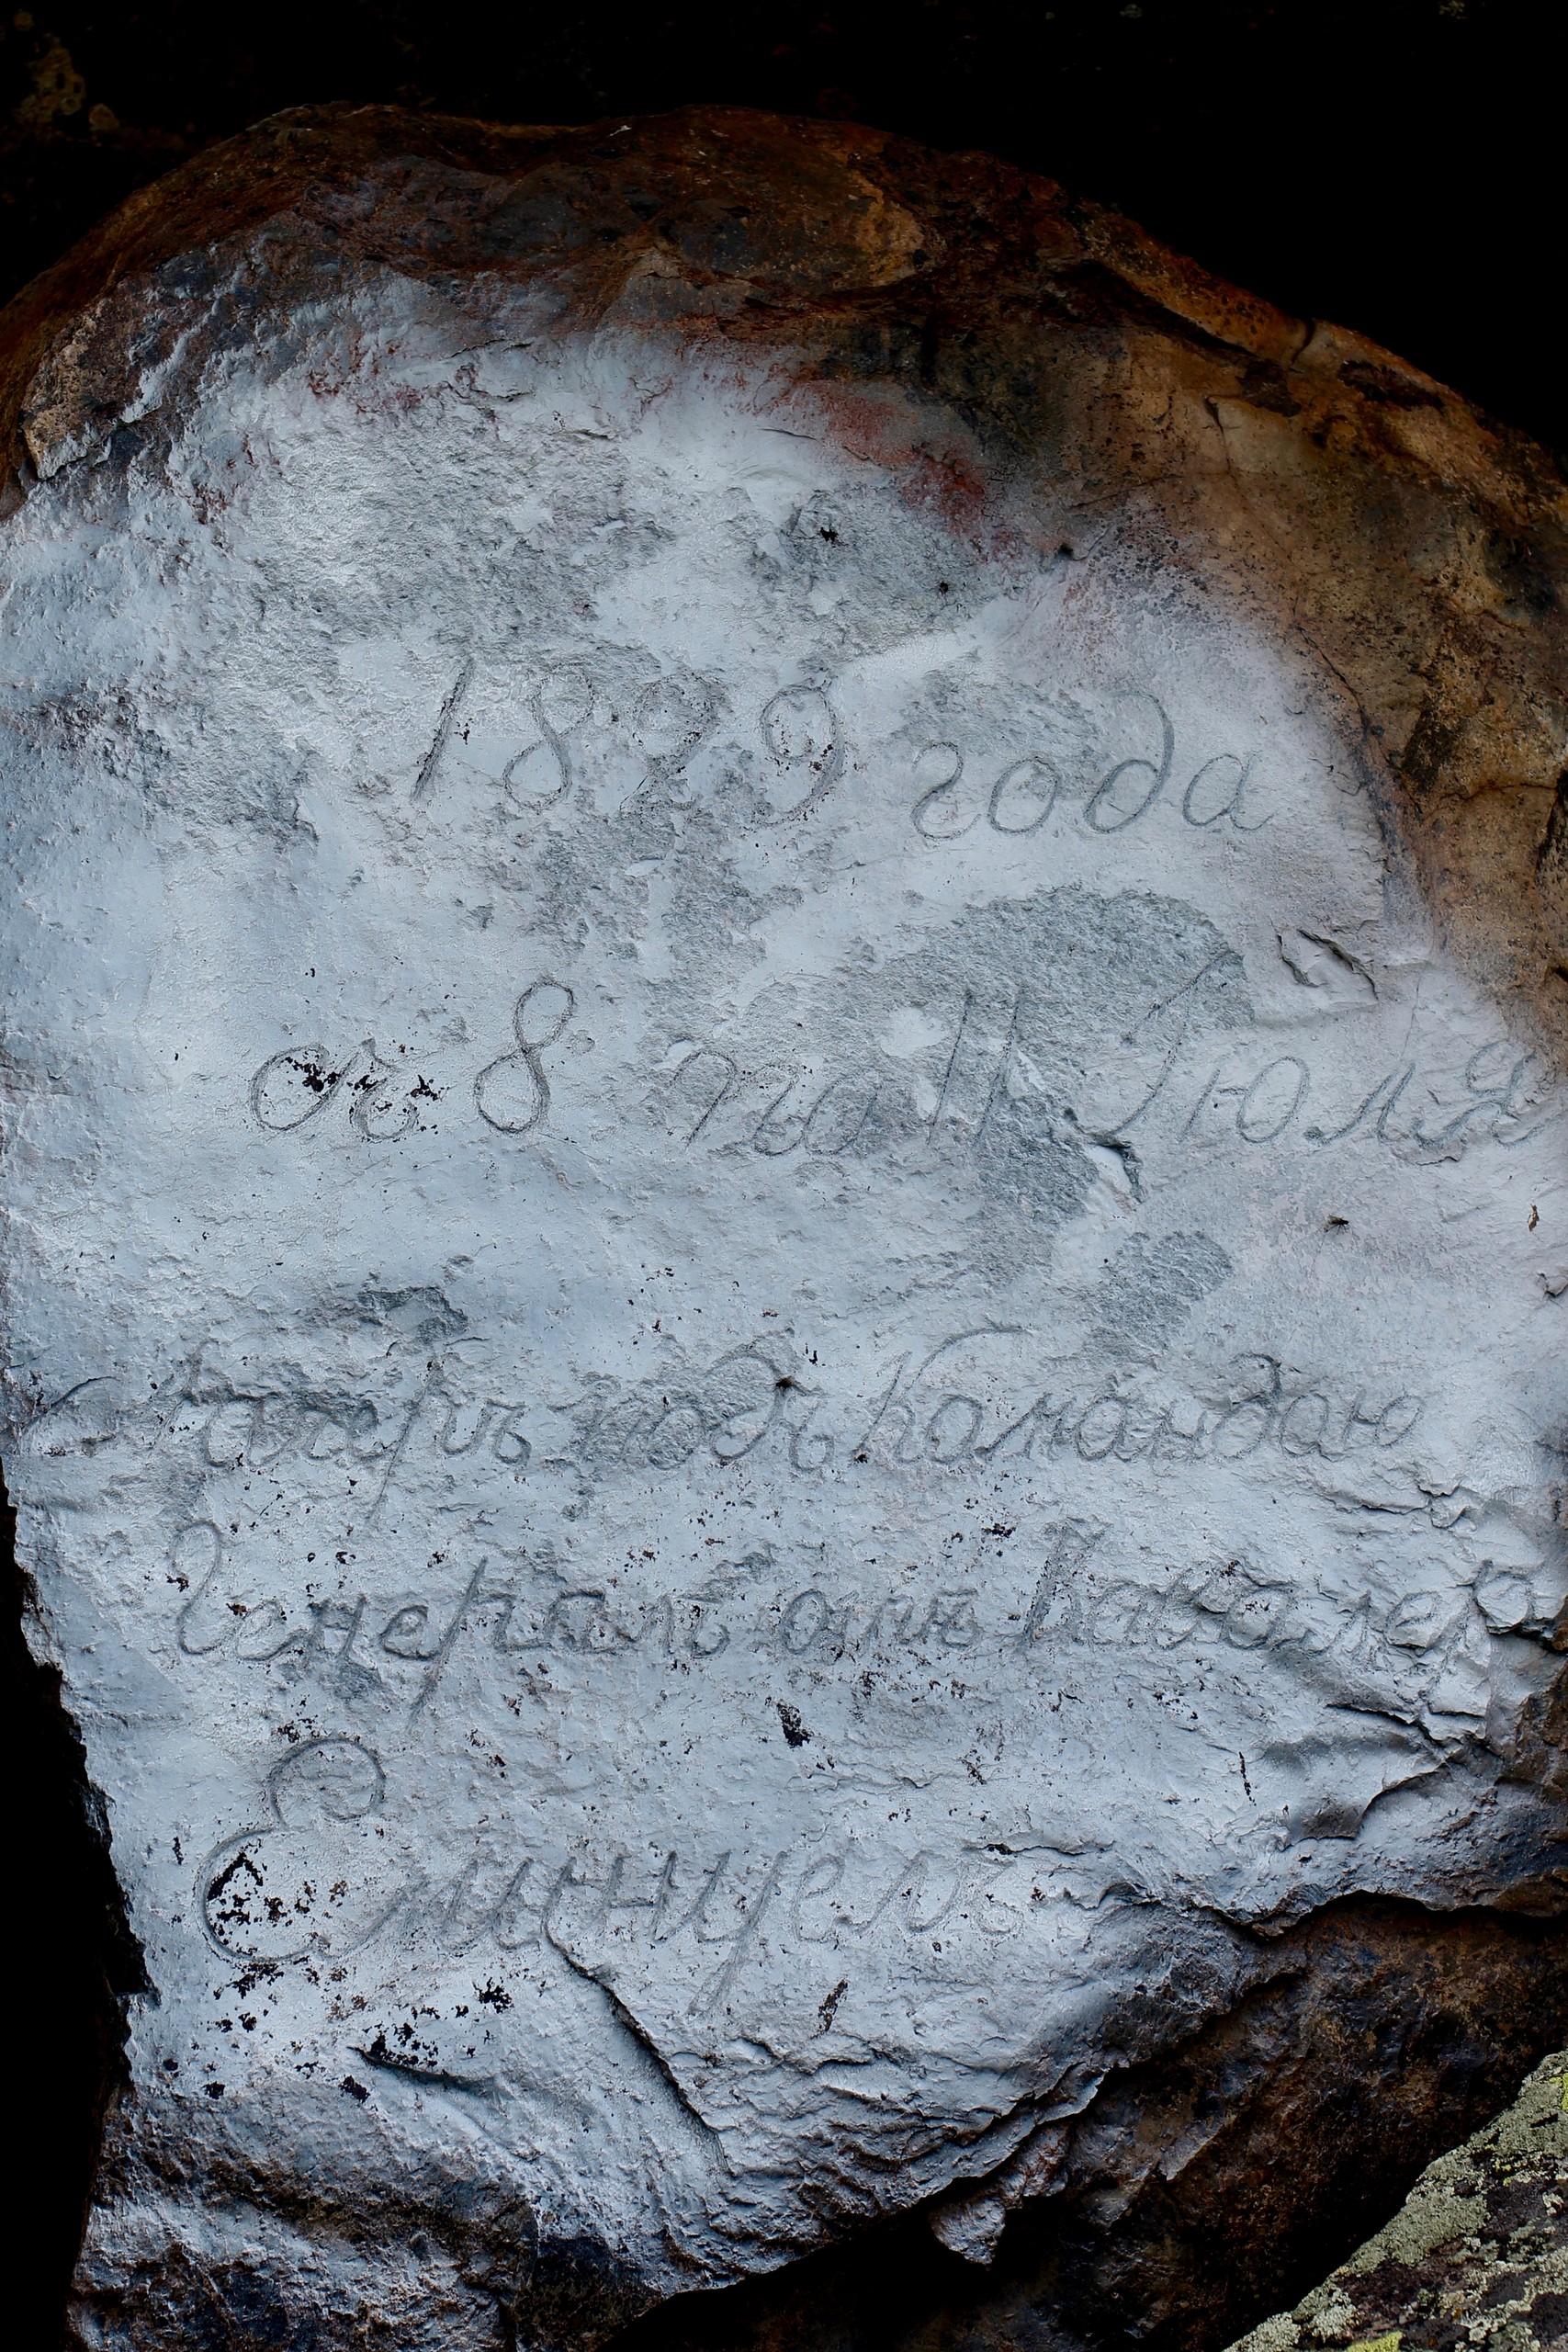 1829 года
съ 8 по 11 Іюля
Лагерь подъ Командою
Генерал отъ Кавалер
Емануель